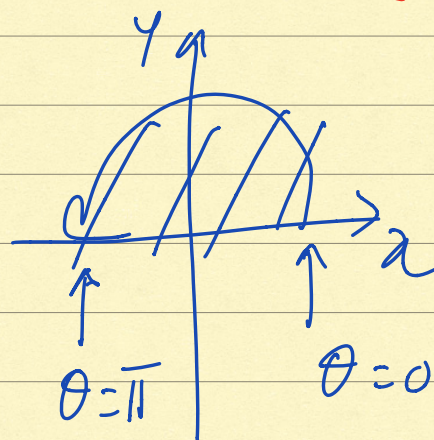 y
x
θ = π
θ = 0